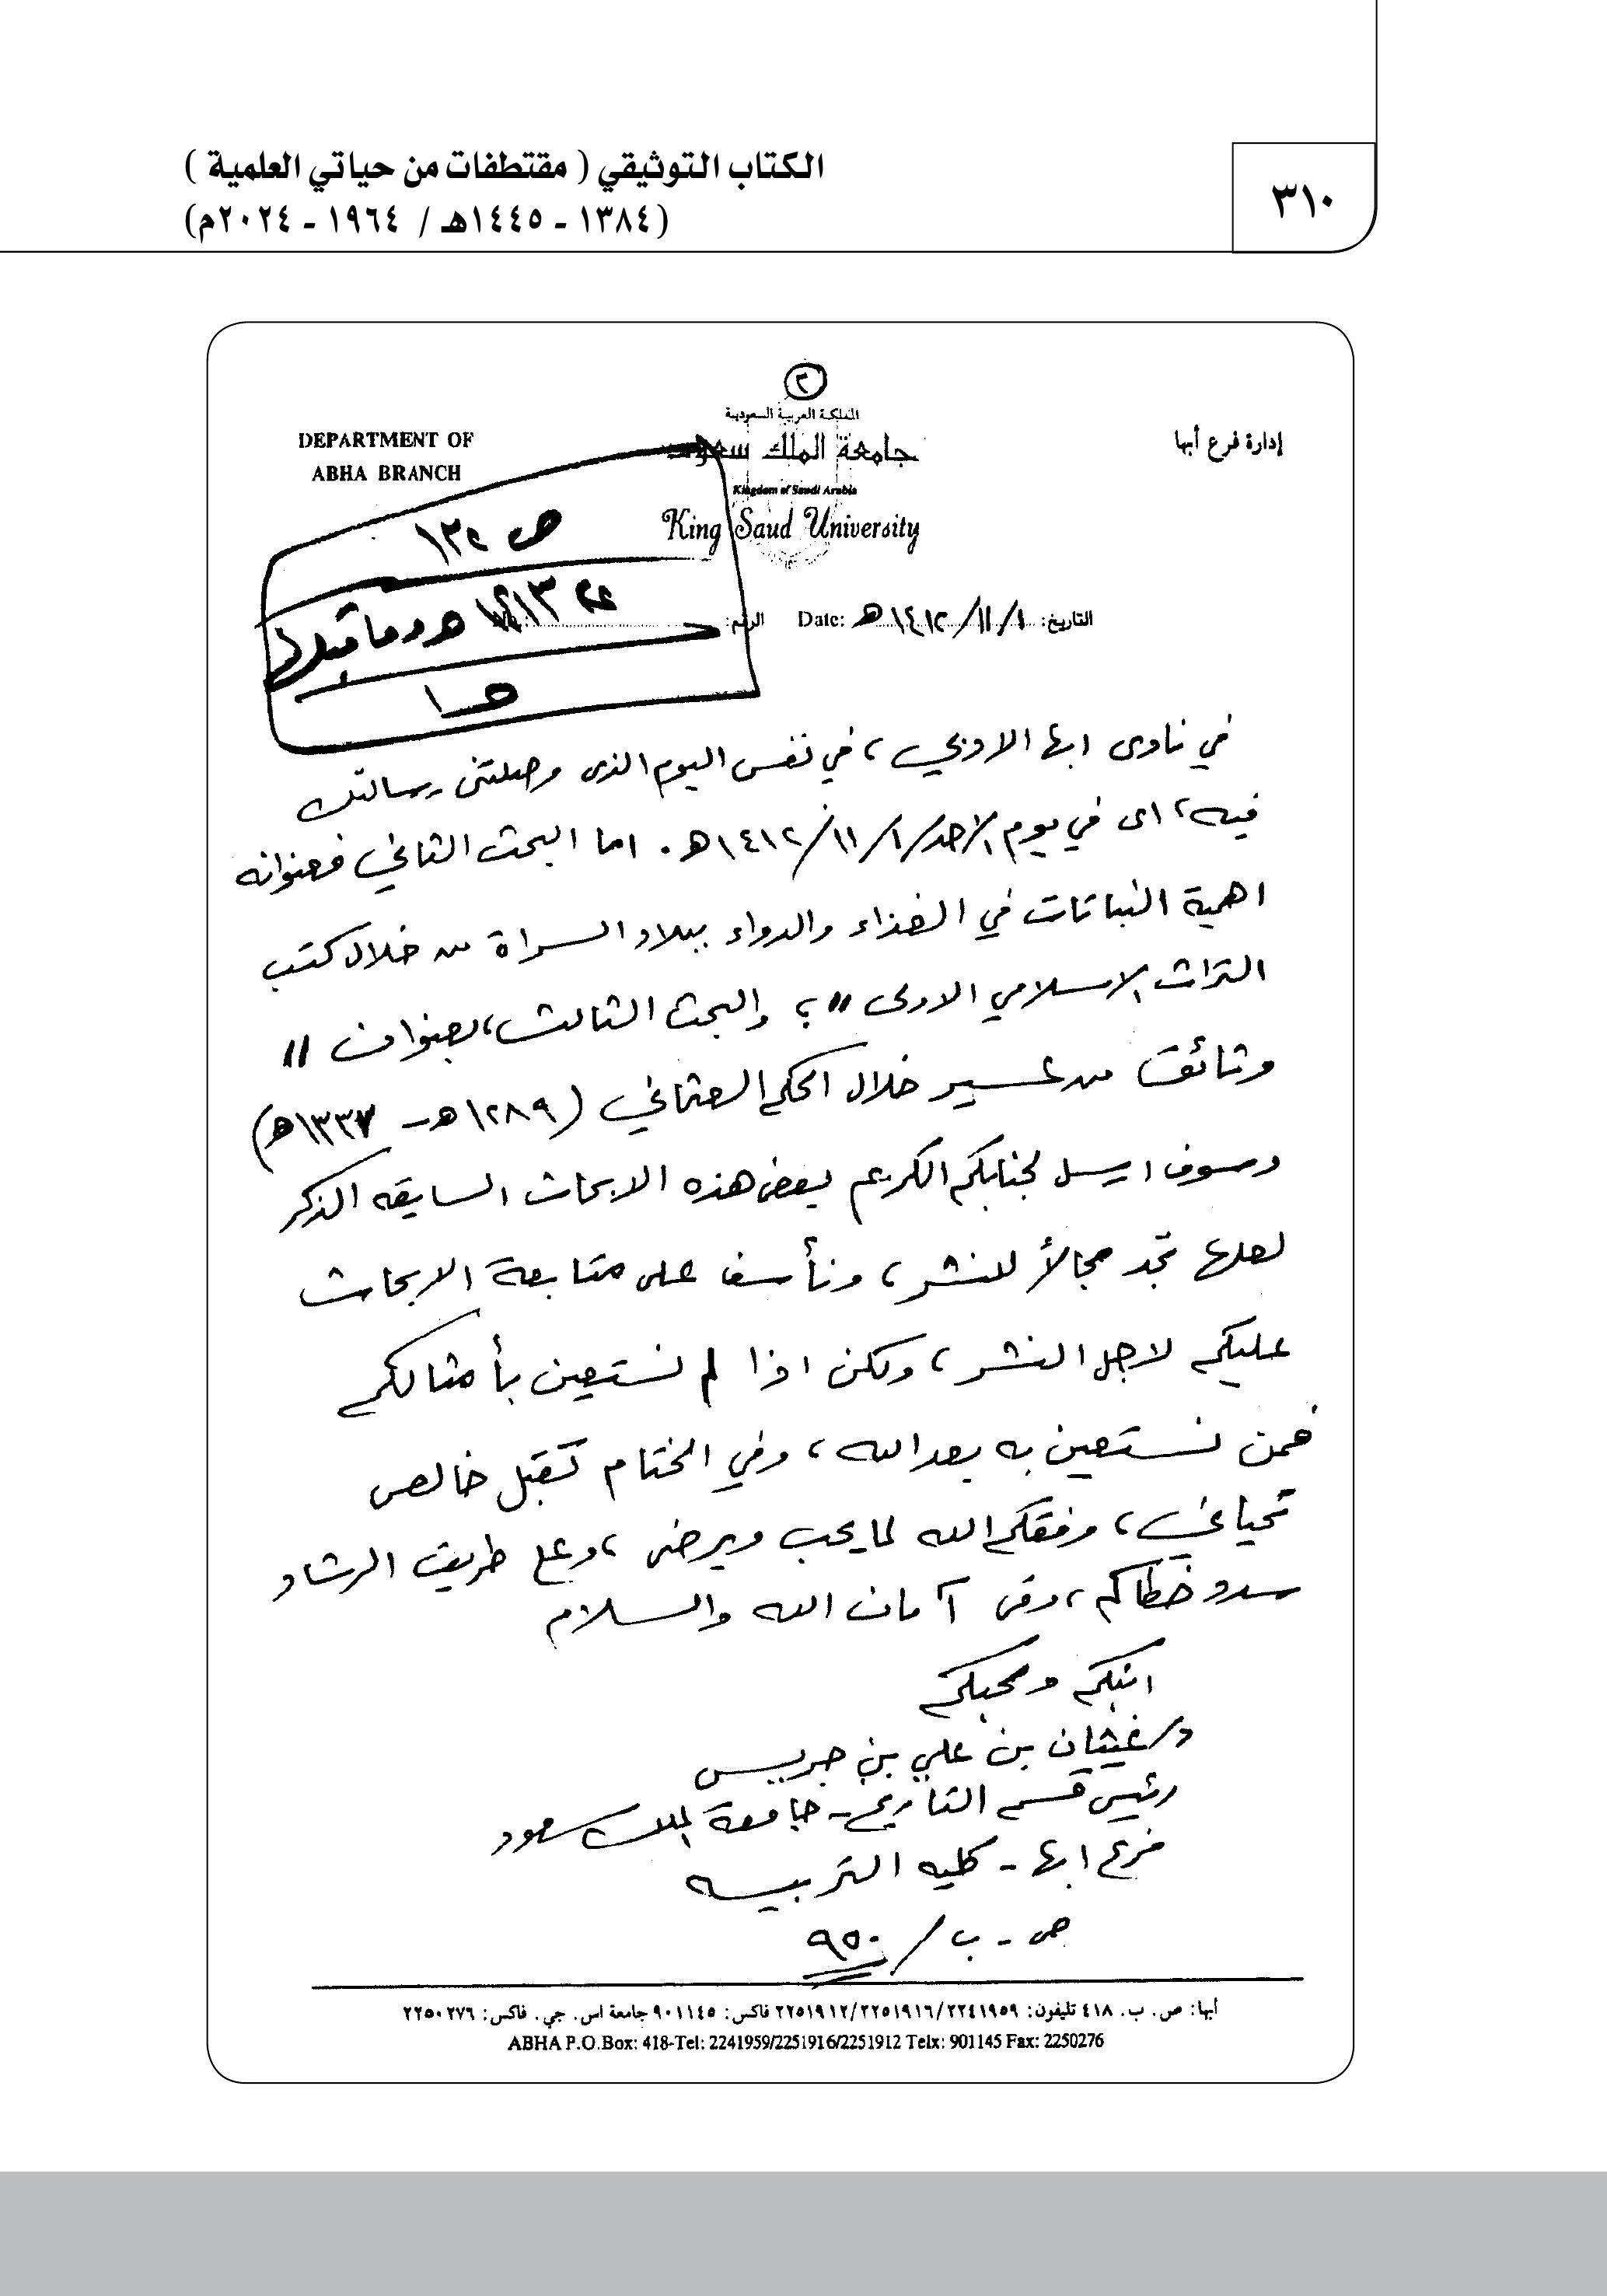 الكتاب التوثيقي ( مقتطفات من حياتي العلمية )
(١٣٨٤ - ١٤٤٥هـ / ١٩٦٤ - ٢٠٢٤م)
٣١٠
٢
المملكة العربية السعودية
جامعة الملك سعود
Kingdom of Saudi Arabia
King Saud University
إدارة فرع أبها
DEPARTMENT OF
ABHA BRANCH
التاريخ: ١/١١/١٤١٢هـ Date:
الرقم: No.:
ص
١٤١٣هـ وما قبلها
في نادى ابها الادبي، في نفس اليوم الذى وصلتنى رسالتك
فيه، اى في يوم الاحد/١/١١/١٤١٢هـ. اما البحث الثاني فعنوانه
اهمية النباتات في الغذاء والدواء ببلاد السراة من خلال كتب
التراث الاسلامي الاولى "؛ والبحث الثالث، بعنوان "
وثائق من عسير خلال الحكم العثماني (١٢٨٩هـ - ١٣٣٧هـ)
وسوف ارسل لجنابكم الكريم بعض هذه الابحاث السابقه الذكر
لعلها تجد مجالاً للنشر، ونأسف على متابعة الابحاث
عليكم لاجل النشر، ولكن اذا لم نستعين بأمثالكم
فمن نستعين به بعد الله، وفي الختام تقبل خالص
تحياتي، وفقكم الله لما يحب ويرضى، وعلى طريق الرشاد
سدد خطاكم، وفى آمان الله والسلام
ابنكم ومحبكم
د/غيثان بن علي بن جريس
رئيس قسم التاريخ - جامعة الملك سعود
فرع ابها - كليه التربيه
ص - ب / ٩٥٠
أبها: ص. ب. ٤١٨ تليفون: ٢٢٥١٩١٢/٢٢٥١٩١٦/٢٢٤١٩٥٩ فاكس: ٩٠١١٤٥ جامعة اس. جي. فاكس: ٢٢٥٠٢٧٦
ABHA P.O.Box: 418-Tel: 2241959/2251916/2251912 Telx: 901145 Fax: 2250276